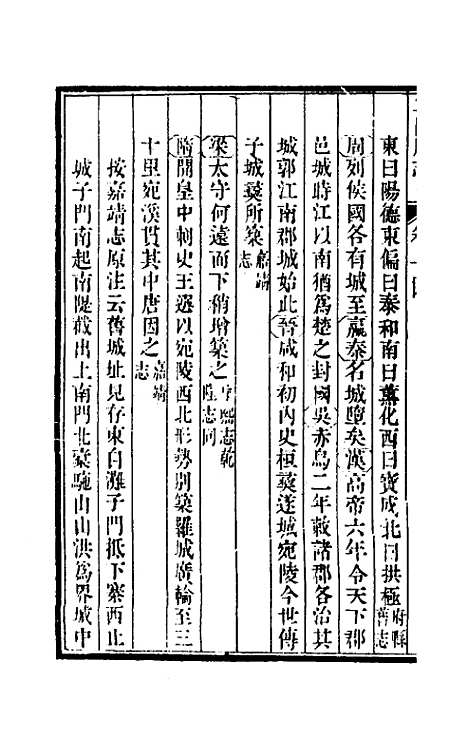 東曰陽德東偏曰泰和南曰薰化西曰寶成北曰拱極府縣舊志
周列侯國各有城至嬴秦名城墮矣漢高帝六年令天下郡
邑城時江以南猶爲楚之封國吳赤烏二年敕諸郡各治其
城郭江南郡城始此晉咸和初內史桓彝遂城宛陵今世傳
子城彝所築嘉靖志
梁太守何遠而下稍增築之康熙志乾隆志同
隋開皇中刺史王選以宛陵西北形勢別築羅城廣輪至三
十里宛溪貫其中唐因之嘉靖志
按嘉靖志原注云舊城址見存東自灘子門抵下寨西止
城子門南起南隄截出上南門北橐駞山山洪爲界城中